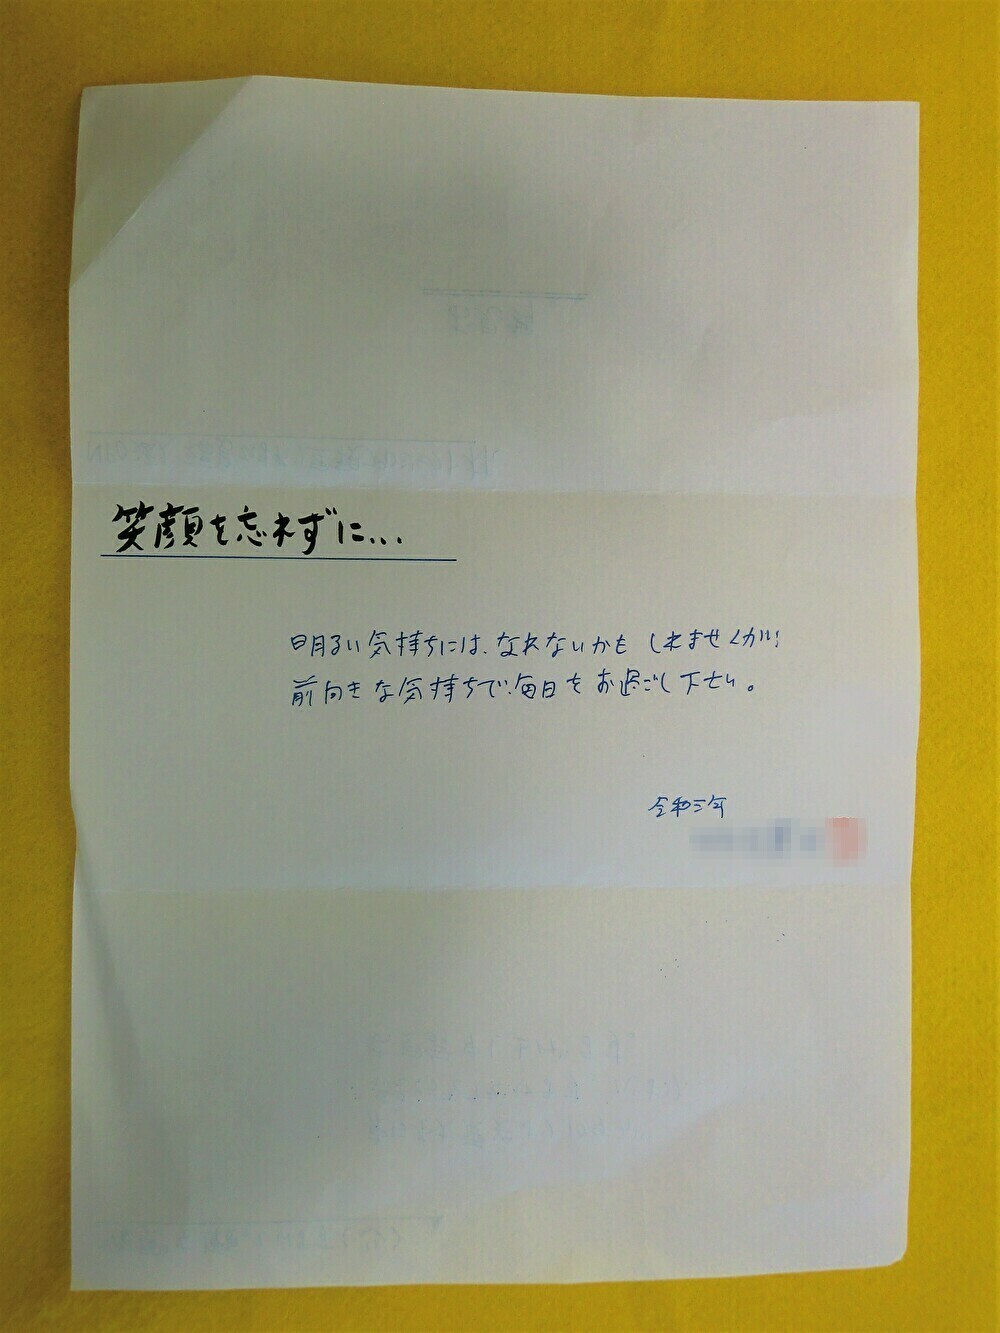 笑顔を忘れずに...
明るい気持ちには、なれないかもしれませんが
前向きな気持ちで、毎日をお過ごし下さい。
令和三年